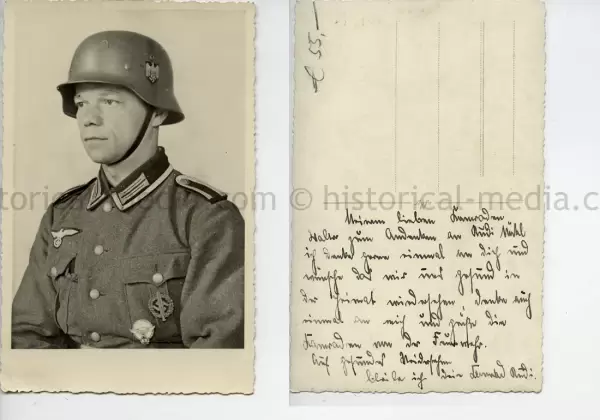 £ 55,-
historical-media.com © historical-media.com
Meinem lieben Kameraden
Walter zum Andenken an Rudi
ich denke gerne einmal an dich und
wünsche das wir uns gesund in
der Heimat wiedersehen, denke auch
einmal an mich und grüße die
Kameraden von der Feuerwehr.
Auf gesundes Wiedersehn
bleibe ich dein Kamerad Rudi.